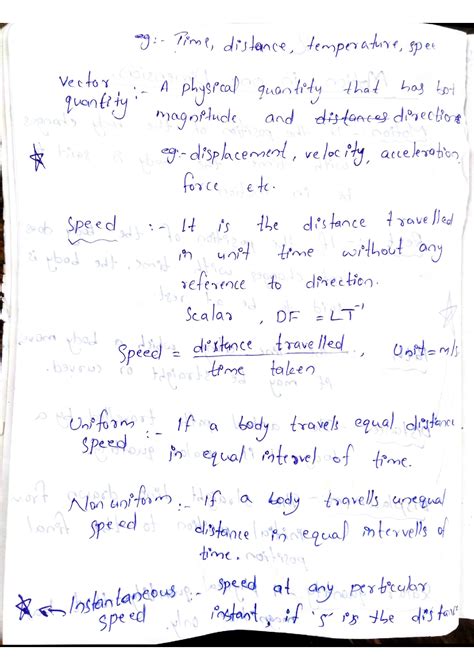 eg:- Time, distance, temperature, spee
Vector quantity :- A physical quantity that has bot
magnitude and distances direction
eg:- displacement, velocity, acceleration,
force etc.
Speed :- It is the distance travelled
in unit time without any
reference to direction.
Scalar, DF = LT⁻¹
Speed = distance travelled / time taken, Unit = m/s
Uniform speed :- If a body travels equal distance
in equal intervel of time.
Non uniform speed :- If a body travells unequal
distance in equal intervells of
time.
Instantaneous speed :- speed at any perticular
instant, if 's' is the distan